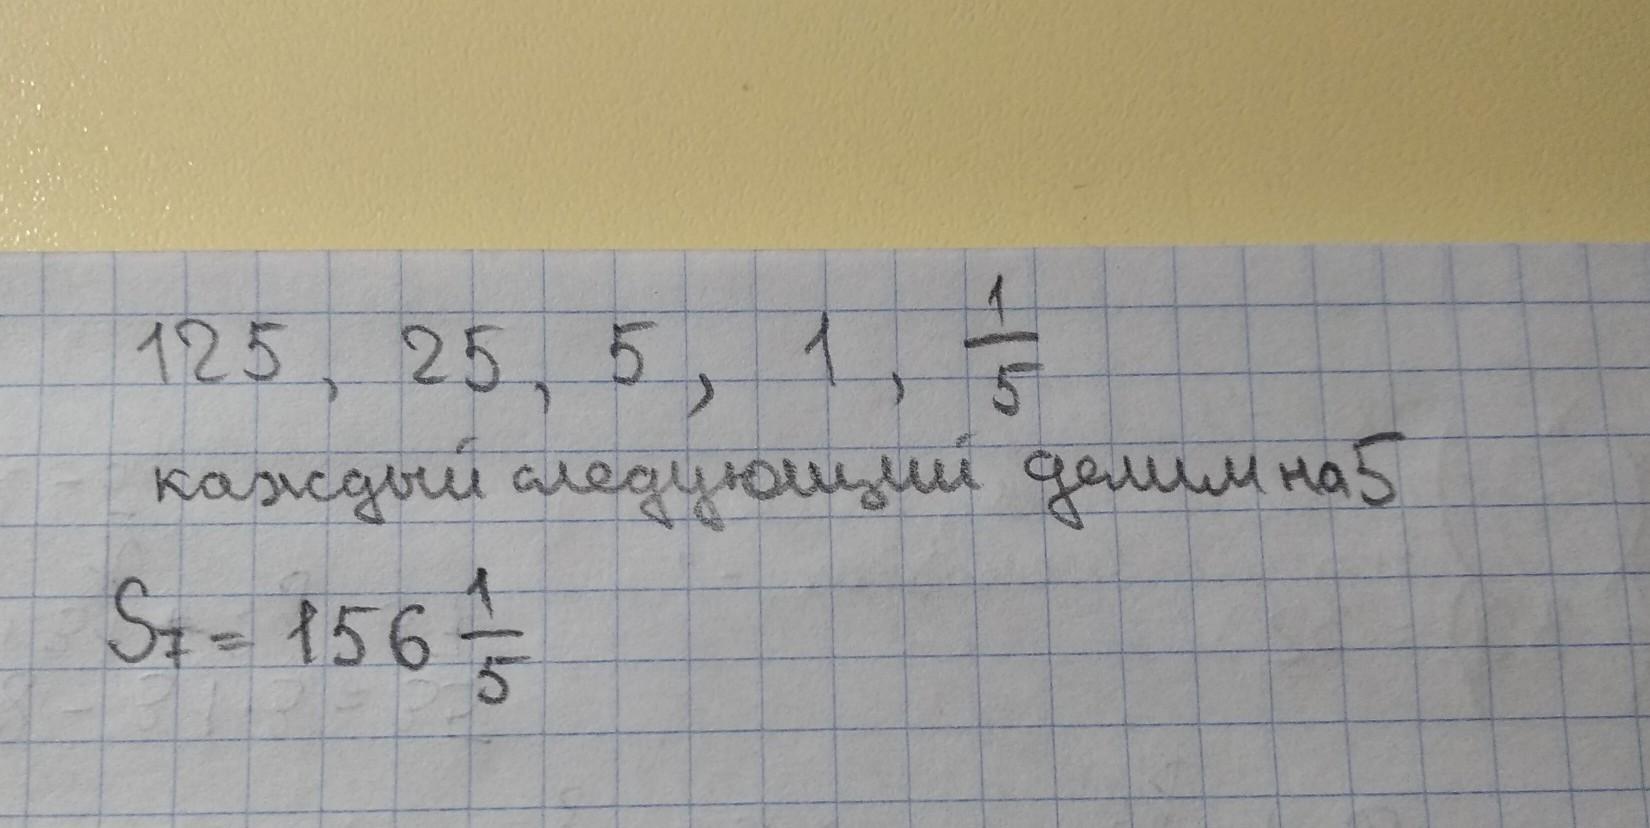 125, 25, 5, 1, 1/5
каждый следующий делим на 5
S₇ = 156 1/5